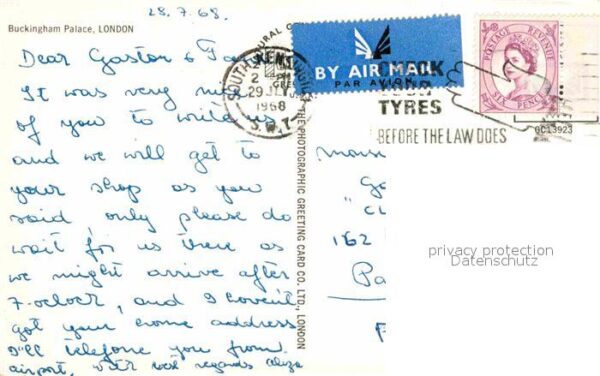 28.7.68.
Buckingham Palace, LONDON
Dear Gaston &
It was very nice
of you to write us
and we will get to
your shop as you
said, only please do
wait for us there as
we might arrive after
7-oclock, and I havent
got your home address
I'll telefone you from
airport. with best regards
SOUTH KENSINGTON
29 JLY
1968
S.W.7
BY AIR MAIL
PAR AVION
CHECK
YOUR
TYRES
BEFORE THE LAW DOES
POSTAGE REVENUE
SIX PENCE
6C13923
THE PHOTOGRAPHIC GREETING CARD CO. LTD., LONDON
162
Pa
privacy protection
Datenschutz